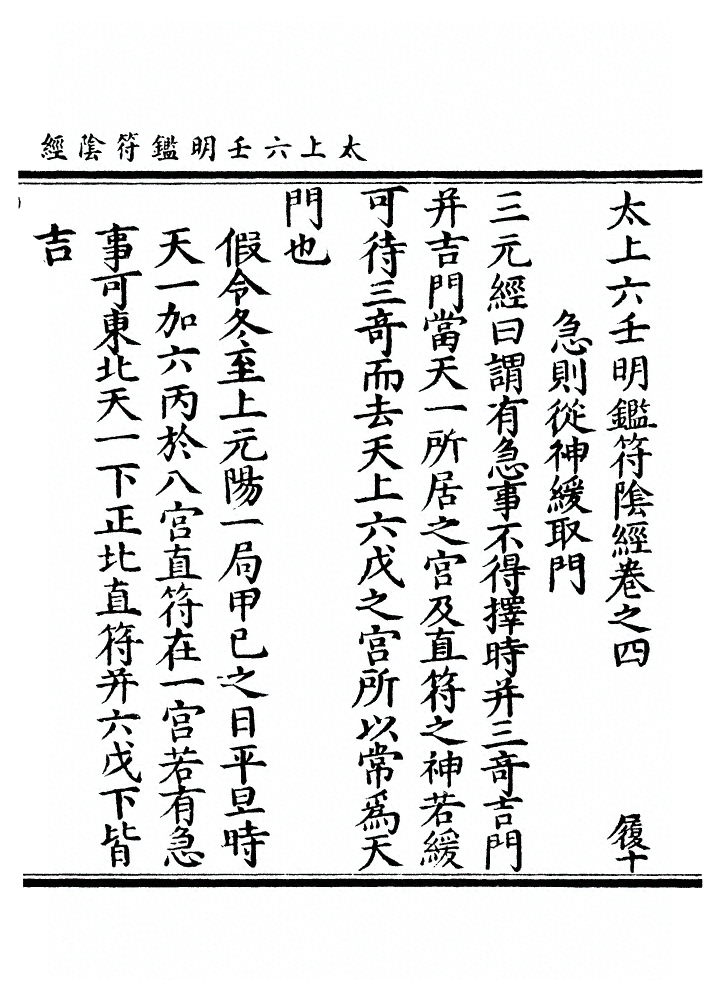 太上六壬明鑑符陰經
太上六壬明鑑符陰經卷之四 履十
急則從神緩取門
三元經曰謂有急事不得擇時并三竒吉門
并吉門當天一所居之宮及直符之神若緩
可待三竒而去天上六戊之宮所以常爲天
門也
假令冬至上元陽一局甲己之日平旦時
天一加六丙於八宮直符在一宮若有急
事可東北天一下正北直符并六戊下皆
吉